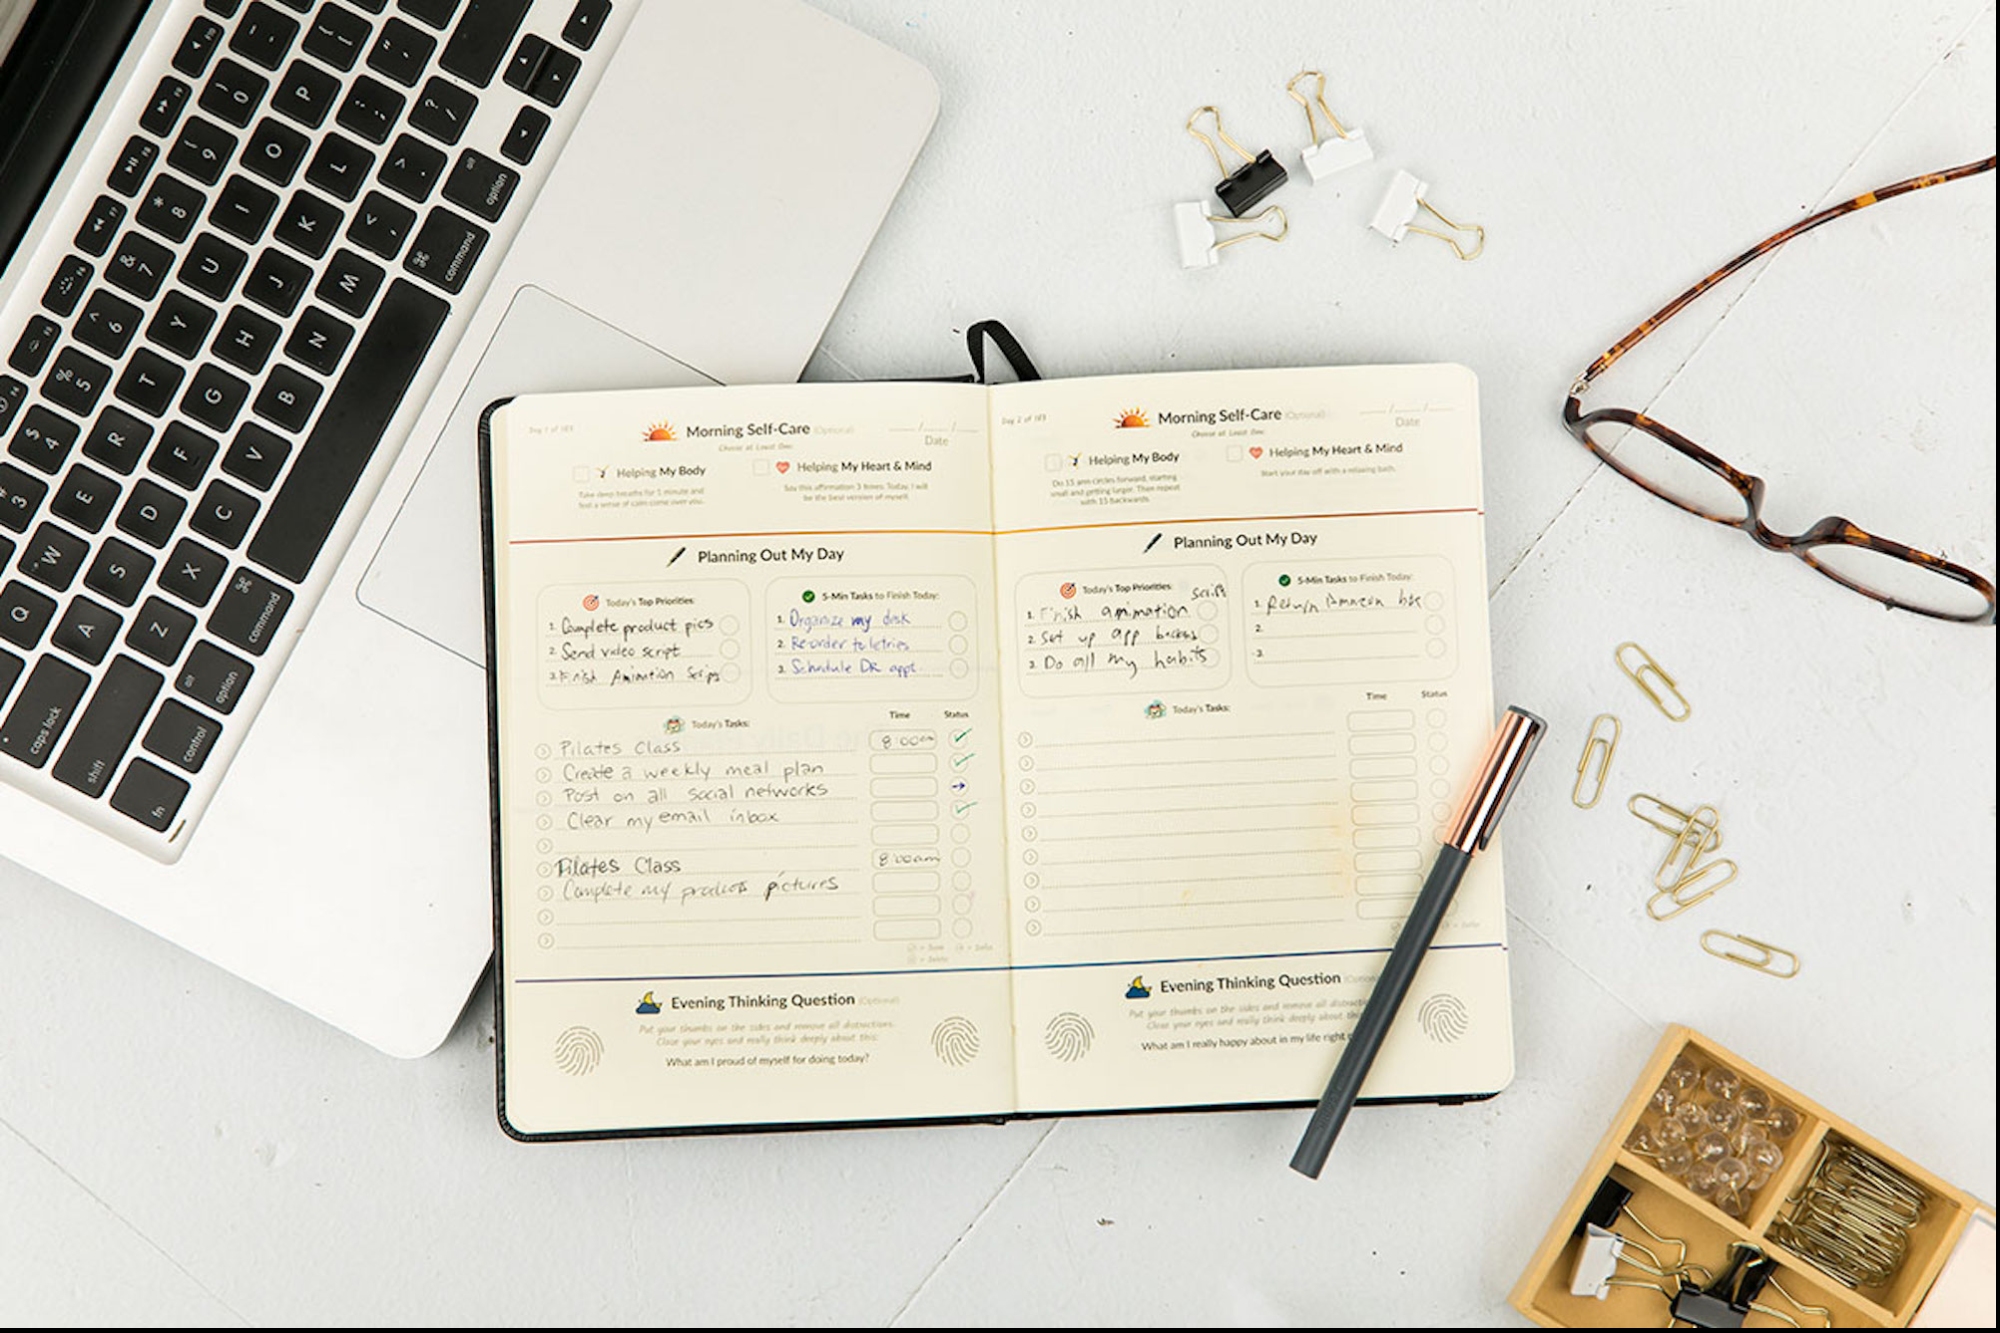 Day 1 of 183
Morning Self-Care (Optional)
Choose at Least One:
Date
Helping My Body
Helping My Heart & Mind
Take deep breaths for 1 minute and
feel a sense of calm come over you.
Say this affirmation 3 times: Today, I will
be the best version of myself.
Planning Out My Day
Today's Top Priorities:
1. Complete product pics
2. Send video script
3. Finish Animation Scrip
5-Min Tasks to Finish Today:
1. Organize my desk
2. Re-order toiletries
3. Schedule DR appt.
Today's Tasks:
Time
Status
Pilates Class 8:00am
Create a weekly meal plan
Post on all social networks
Clear my email inbox
Pilates Class 8:00am
Complete my product pictures
Evening Thinking Question (Optional)
Put your thumbs on the sides and remove all distractions.
Close your eyes and really think deeply about this:
What am I proud of myself for doing today?
Day 2 of 183
Morning Self-Care (Optional)
Choose at Least One:
Date
Helping My Body
Helping My Heart & Mind
Do 15 arm circles forward, starting
small and getting larger. Then repeat
with 15 backwards.
Start your day off with a relaxing bath.
Planning Out My Day
Today's Top Priorities:
script
1. Finish animation
2. Set up app
3. Do all my habits
5-Min Tasks to Finish Today:
1. Return Amazon box
2.
3.
Today's Tasks:
Time
Status
Evening Thinking Question
Put your thumbs on the sides and remove all
Close your eyes and really think deeply about
What am I really happy about in my life right
command
option
alt
command
option
alt
control
fn
shift
caps lock
P
O
I
U
Y
T
R
E
W
Q
L
K
J
H
G
F
D
S
A
M
N
B
V
C
X
Z
0
9
8
7
6
5
4
3